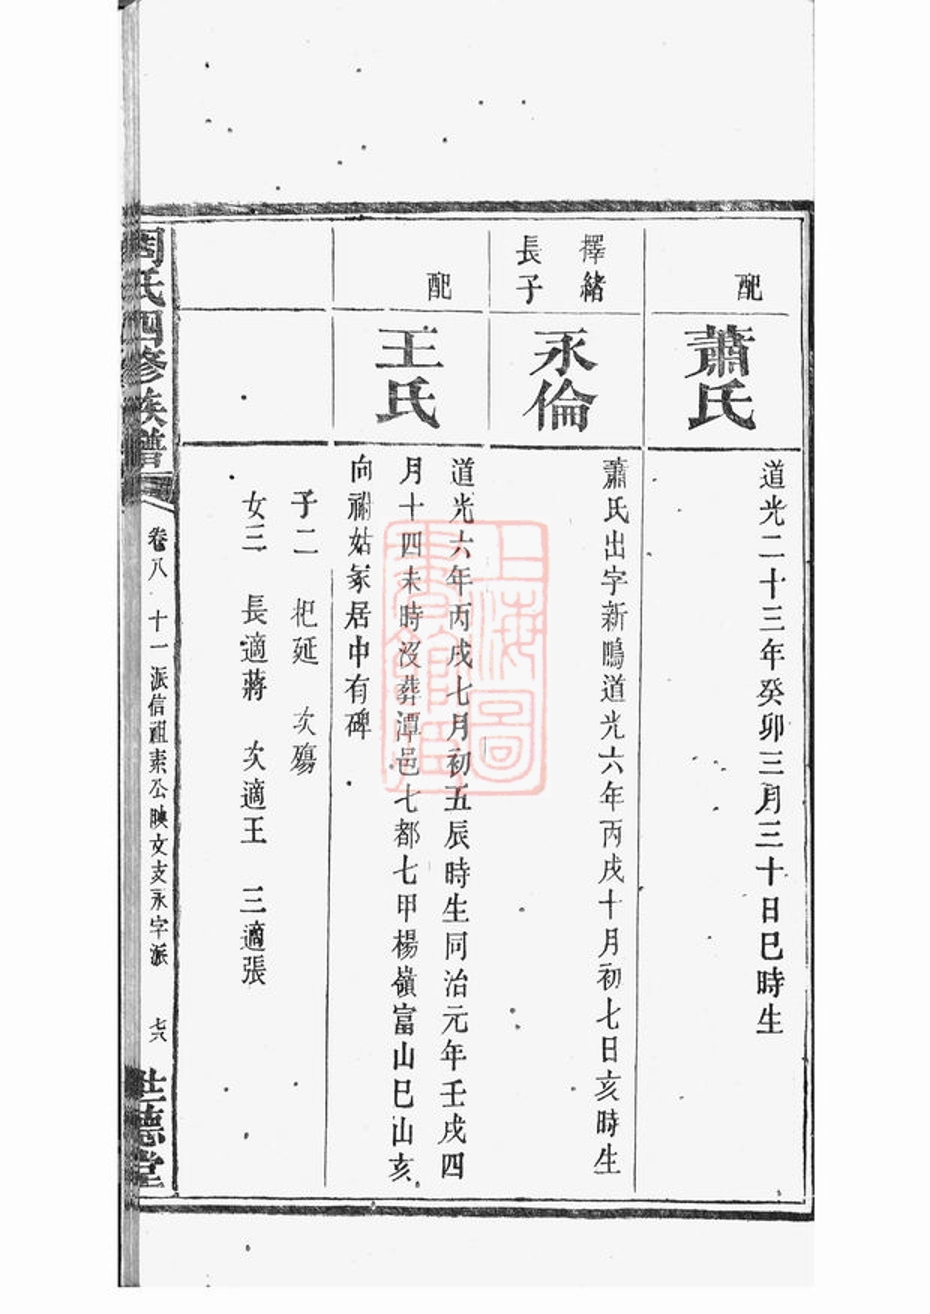 配
蕭氏
道光二十三年癸卯三月三十日巳時生
擇緒
長子
永倫
蕭氏出字新鳴道光六年丙戌十月初七日亥時生
配
王氏
道光六年丙戌七月初五辰時生同治元年壬戌四
月十四未時沒葬潭邑七都七甲楊嶺富山巳山亥
向祔姑冡居中有碑
子二 杞延 次殤
女三 長適蔣 次適王 三適張
周氏四修族譜
卷八 十一派信祖素公映文支永字派 七六
世德堂
上海圖
書館藏